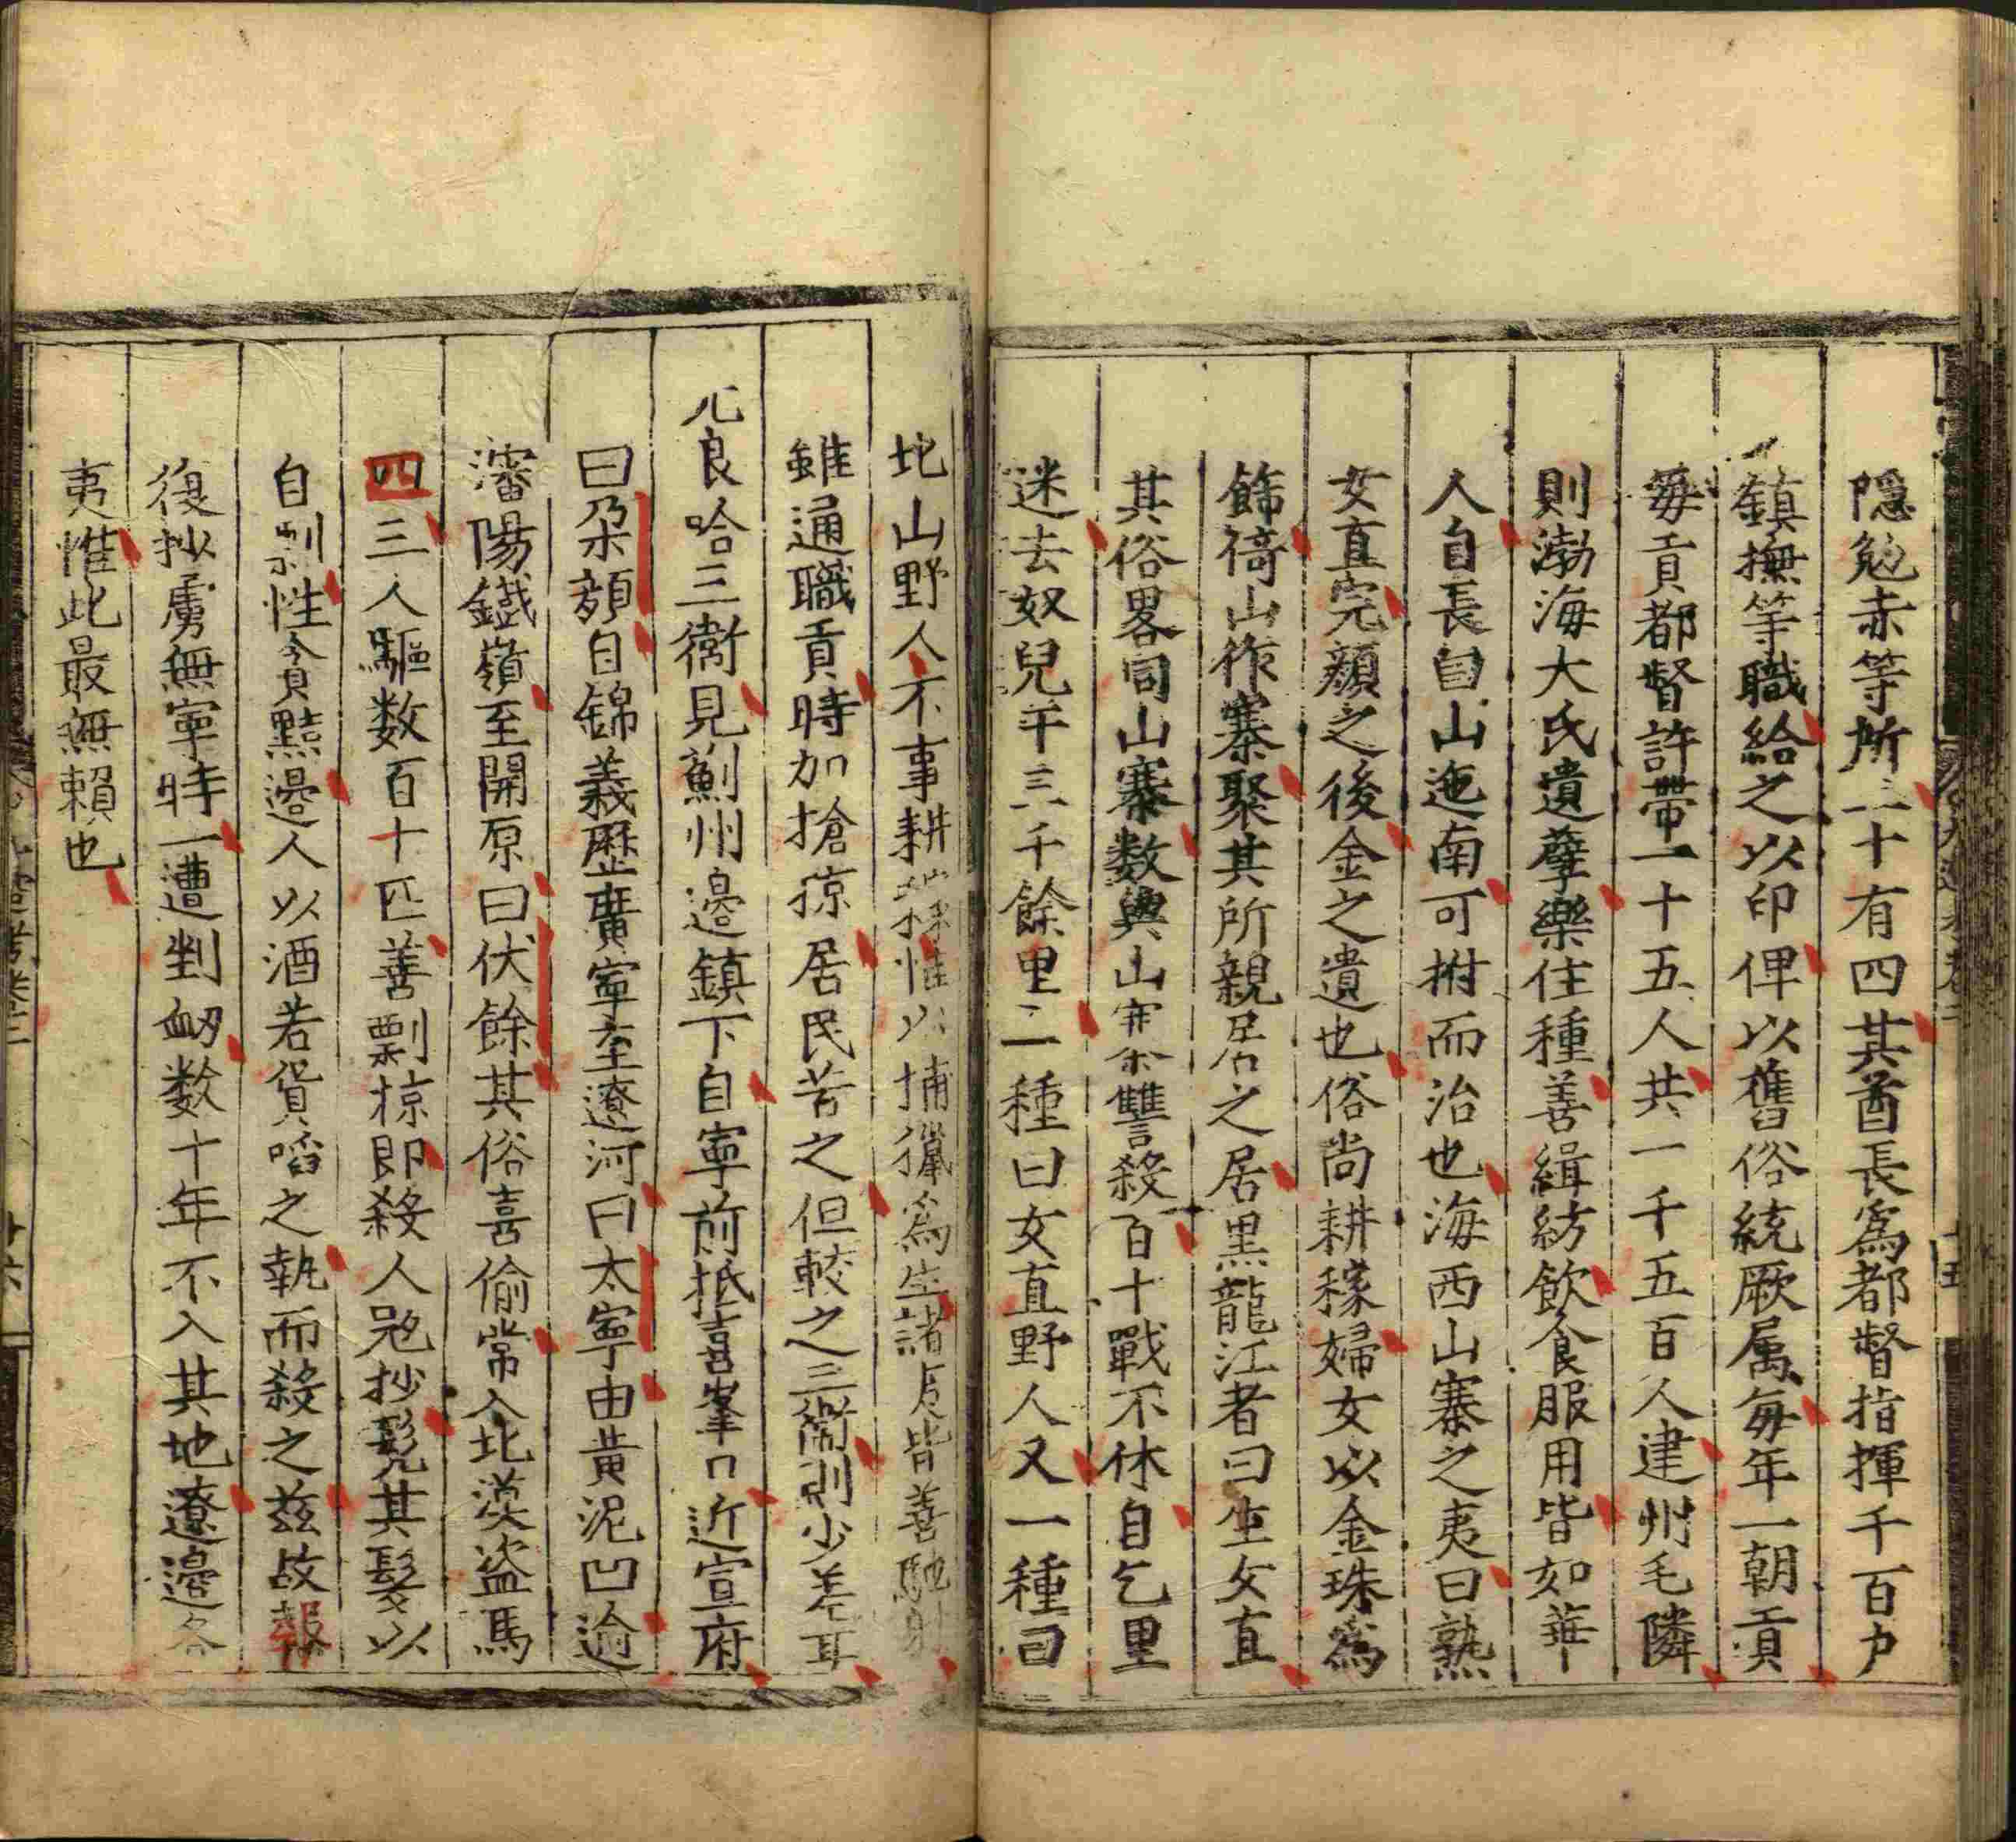 隱勉赤等所二十有四其酋長爲都督指揮千百户
鎮撫等職給之以印俾以舊俗統厥属每年一朝貢
每貢都督許帶一十五人共一千五百人建州毛隣
則渤海大氏遺孽樂住種善緝紡飲食服用皆如華
人自長白山迤南可拊而治也海西山寨之夷曰熟
女直完顔之後金之遺也俗尚耕稼婦女以金珠爲
飾倚山作寨聚其所親居之居黒龍江者曰生女直
其俗畧同山寨数與山寨讐殺百十戰不休自乞里
迷去奴兒干三千餘里二種曰女直野人又一種曰
北山野人不事耕稼惟以捕獵爲生諸夷皆善馳射
雖通職貢時加搶掠居民苦之但較之三衛則少差耳
兀良哈三衛見薊州邉鎮下自寧前抵喜峯口近宣府
曰朶顔自錦義歷廣寧至遼河曰太寧由黄泥凹逾
瀋陽鐵嶺至開原曰伏餘其俗喜偷常入北漠盗馬
四三人驅数百十匹善剽掠即殺人兇抄髡其髮以
自剽性貪黠邉人以酒若貨啗之執而殺之兹故報
復抄虜無寧時一遭剉衂数十年不入其地遼邉各
夷惟此最無賴也